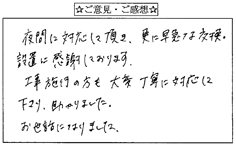 ☆ご意見・ご感想☆
夜間に対応して頂き、更に早急な交換。
設置に感謝しております。
工事施行の方も大変丁寧に対応して
下さり、助かりました。
お世話になりました。